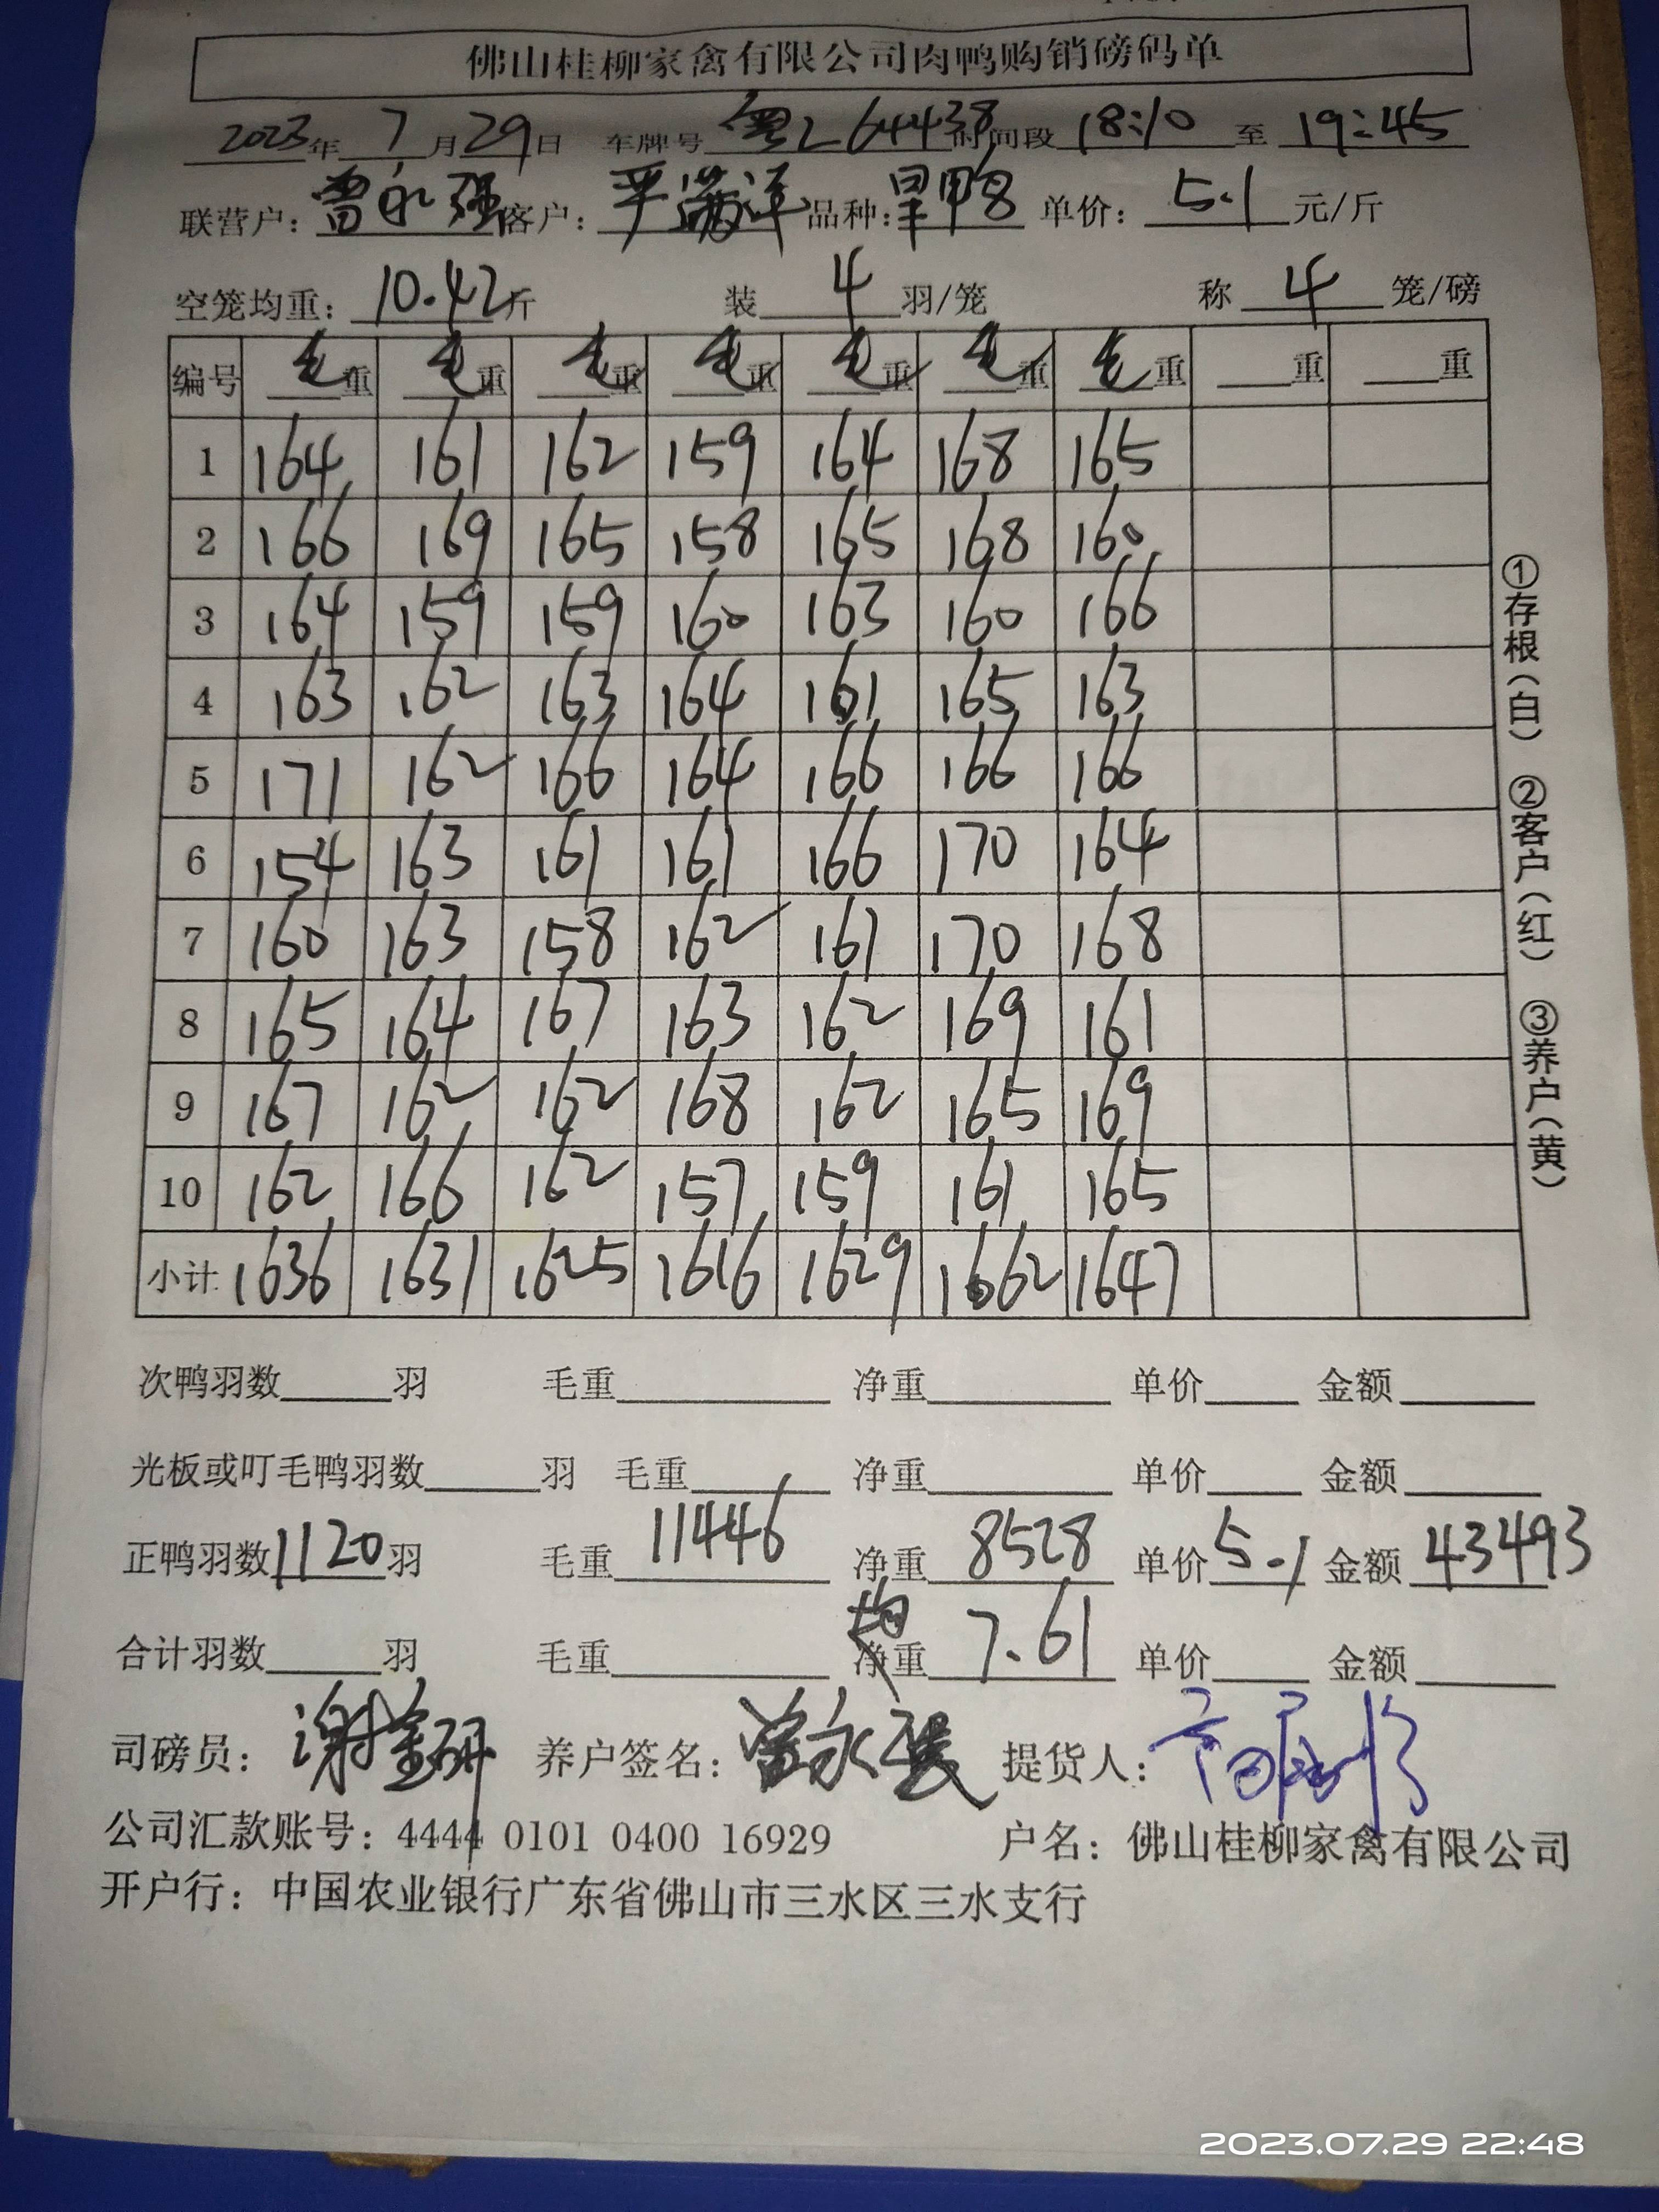 佛山桂柳家禽有限公司肉鸭购销磅码单
2023年 7 月 29 日 车牌号 粤L64438 时间段 18:10 至 19:45
联营户: 曾永强 客户: 严满洋 品种: 旱鸭 单价: 5.1 元/斤
空笼均重: 10.42 斤 装 4 羽/笼 称 4 笼/磅
编号 毛重 毛重 毛重 毛重 毛重 毛重 毛重 重 重
1 164 161 162 159 164 168 165
2 166 169 165 158 165 168 160
3 164 159 159 160 163 160 166
4 163 162 163 164 161 165 163
5 171 162 166 164 166 166 166
6 154 163 161 161 166 170 164
7 160 163 158 162 161 170 168
8 165 164 167 163 162 169 161
9 167 162 162 168 162 165 169
10 162 166 162 157 159 161 165
小计 1636 1631 1625 1616 1629 1662 1647
①存根(白) ②客户(红) ③养户(黄)
次鸭羽数 羽 毛重 净重 单价 金额
光板或叮毛鸭羽数 羽 毛重 净重 单价 金额
正鸭羽数 1120 羽 毛重 11446 净重 8528 单价 5.1 金额 43493
合计羽数 羽 毛重 均 净重 7.61 单价 金额
司磅员: 谢金研 养户签名: 曾永强 提货人:
公司汇款账号: 4444 0101 0400 16929 户名: 佛山桂柳家禽有限公司
开户行: 中国农业银行广东省佛山市三水区三水支行
2023.07.29 22:48